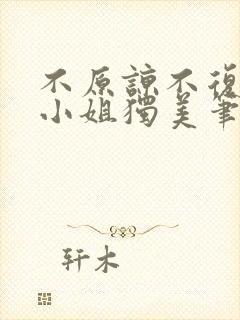 不原諒不復
小姐獨美筆
轩木